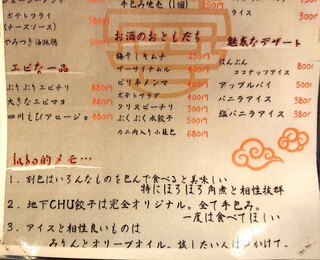 手包み焼売(1個) 250円
アイス 300円
ポテトフライ
(チーズソース)
やみつき油淋鶏 500円
お酒のおともだち
梅干しキムチ 250円
ザーサイナムル 400円
ピリ辛メンマ 400円
ポテトサラダ 400円
クリスピーチリ 500円
ぷくぷく水餃子 500円
カニ肉入り小籠包 680円
エビな一品
ぷりぷりエビチリ 880円
大きなエビマヨ 880円
四川えびアヒージョ 880円
魅惑なデザート
はんぷん 800円
ココナッツアイス
アップルパイ 500円
バニラアイス 380円
塩バニラアイス 380円
labo的メモ…
1. 割包はいろんなものを包んで食べると美味しい
特にほろほろ角煮と相性抜群
2. 地下CHU餃子は完全オリジナル。全て手包み。
一度は食べてほしい
3. アイスと相性良いものは
みりんとオリーブオイル。試したい人は
かけて。